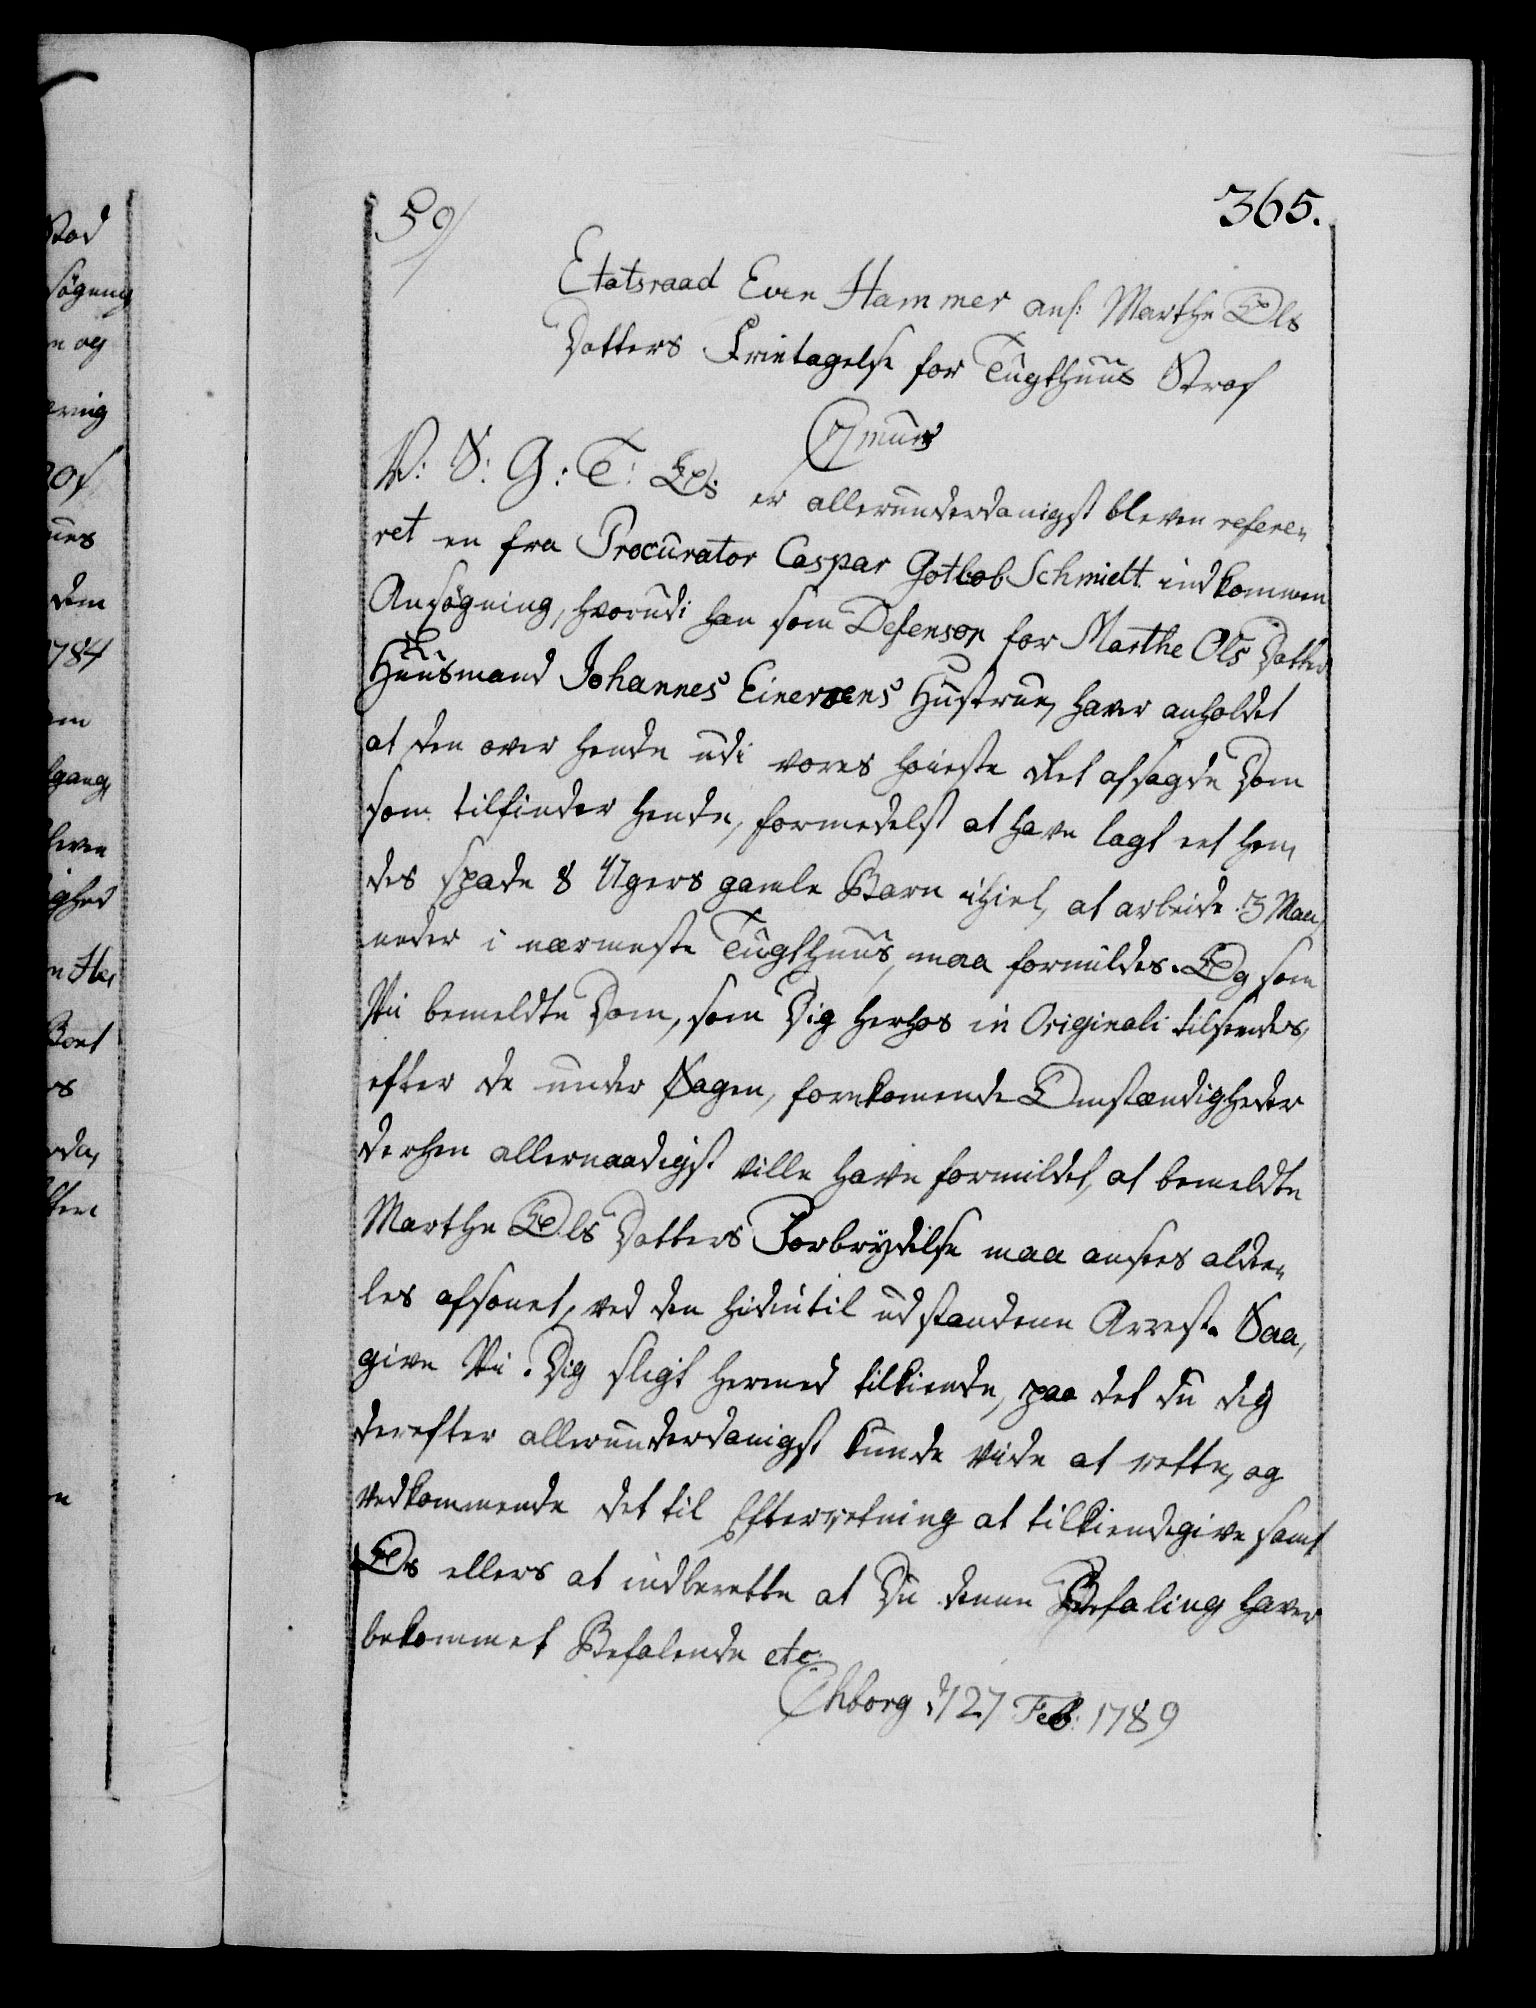 365.
59/
Etatsraad Even Hammer anl: Marthe Ols
Datters Fritagelse for Tugthuus Straf
C7mus
V: S: G: T: Os er allerunderdanigst bleven refere-
ret en fra Procurator Caspar Gotlob Schmidt indkommen
Ansøgning, hvorudi han som Defensor for Marthe Ols Datter
Huusmand Johannes Einersens Hustrue, haver anholdet
at den over hende udi vores høieste Ret afsagde Dom
som tilfinder hende, formedelst at have lagt eet hen-
des spade 8 Ugers gamle Barn ihiel, at arbeide 3 Maa-
neder i nærmeste Tugthuus, maa formildes. Og som
Vii bemeldte Dom, som Dig herhos in Originali tilsendes,
efter de under Sagen, forekomende Omstændigheder
derhen allernaadigst ville have formildet, at bemeldte
Marthe Ols Datters Forbrydelse maa ansees aldee-
les afsonet, ved den hidintil udstandene Arrest. Saa
give Vii Dig sligt hermed tilkiende, paa det du dig
derefter allerunderdanigst kunde vide at rette, og
vedkommende det til Efterretning at tilkiendegive samt
Os ellers at indberette at Du denne Befaling haver
bekommet Befalende etc.
Chborg d 27 Feb: 1789
Stad
søgning
n og
ues
dem
1784
gang,
bleven
ighed